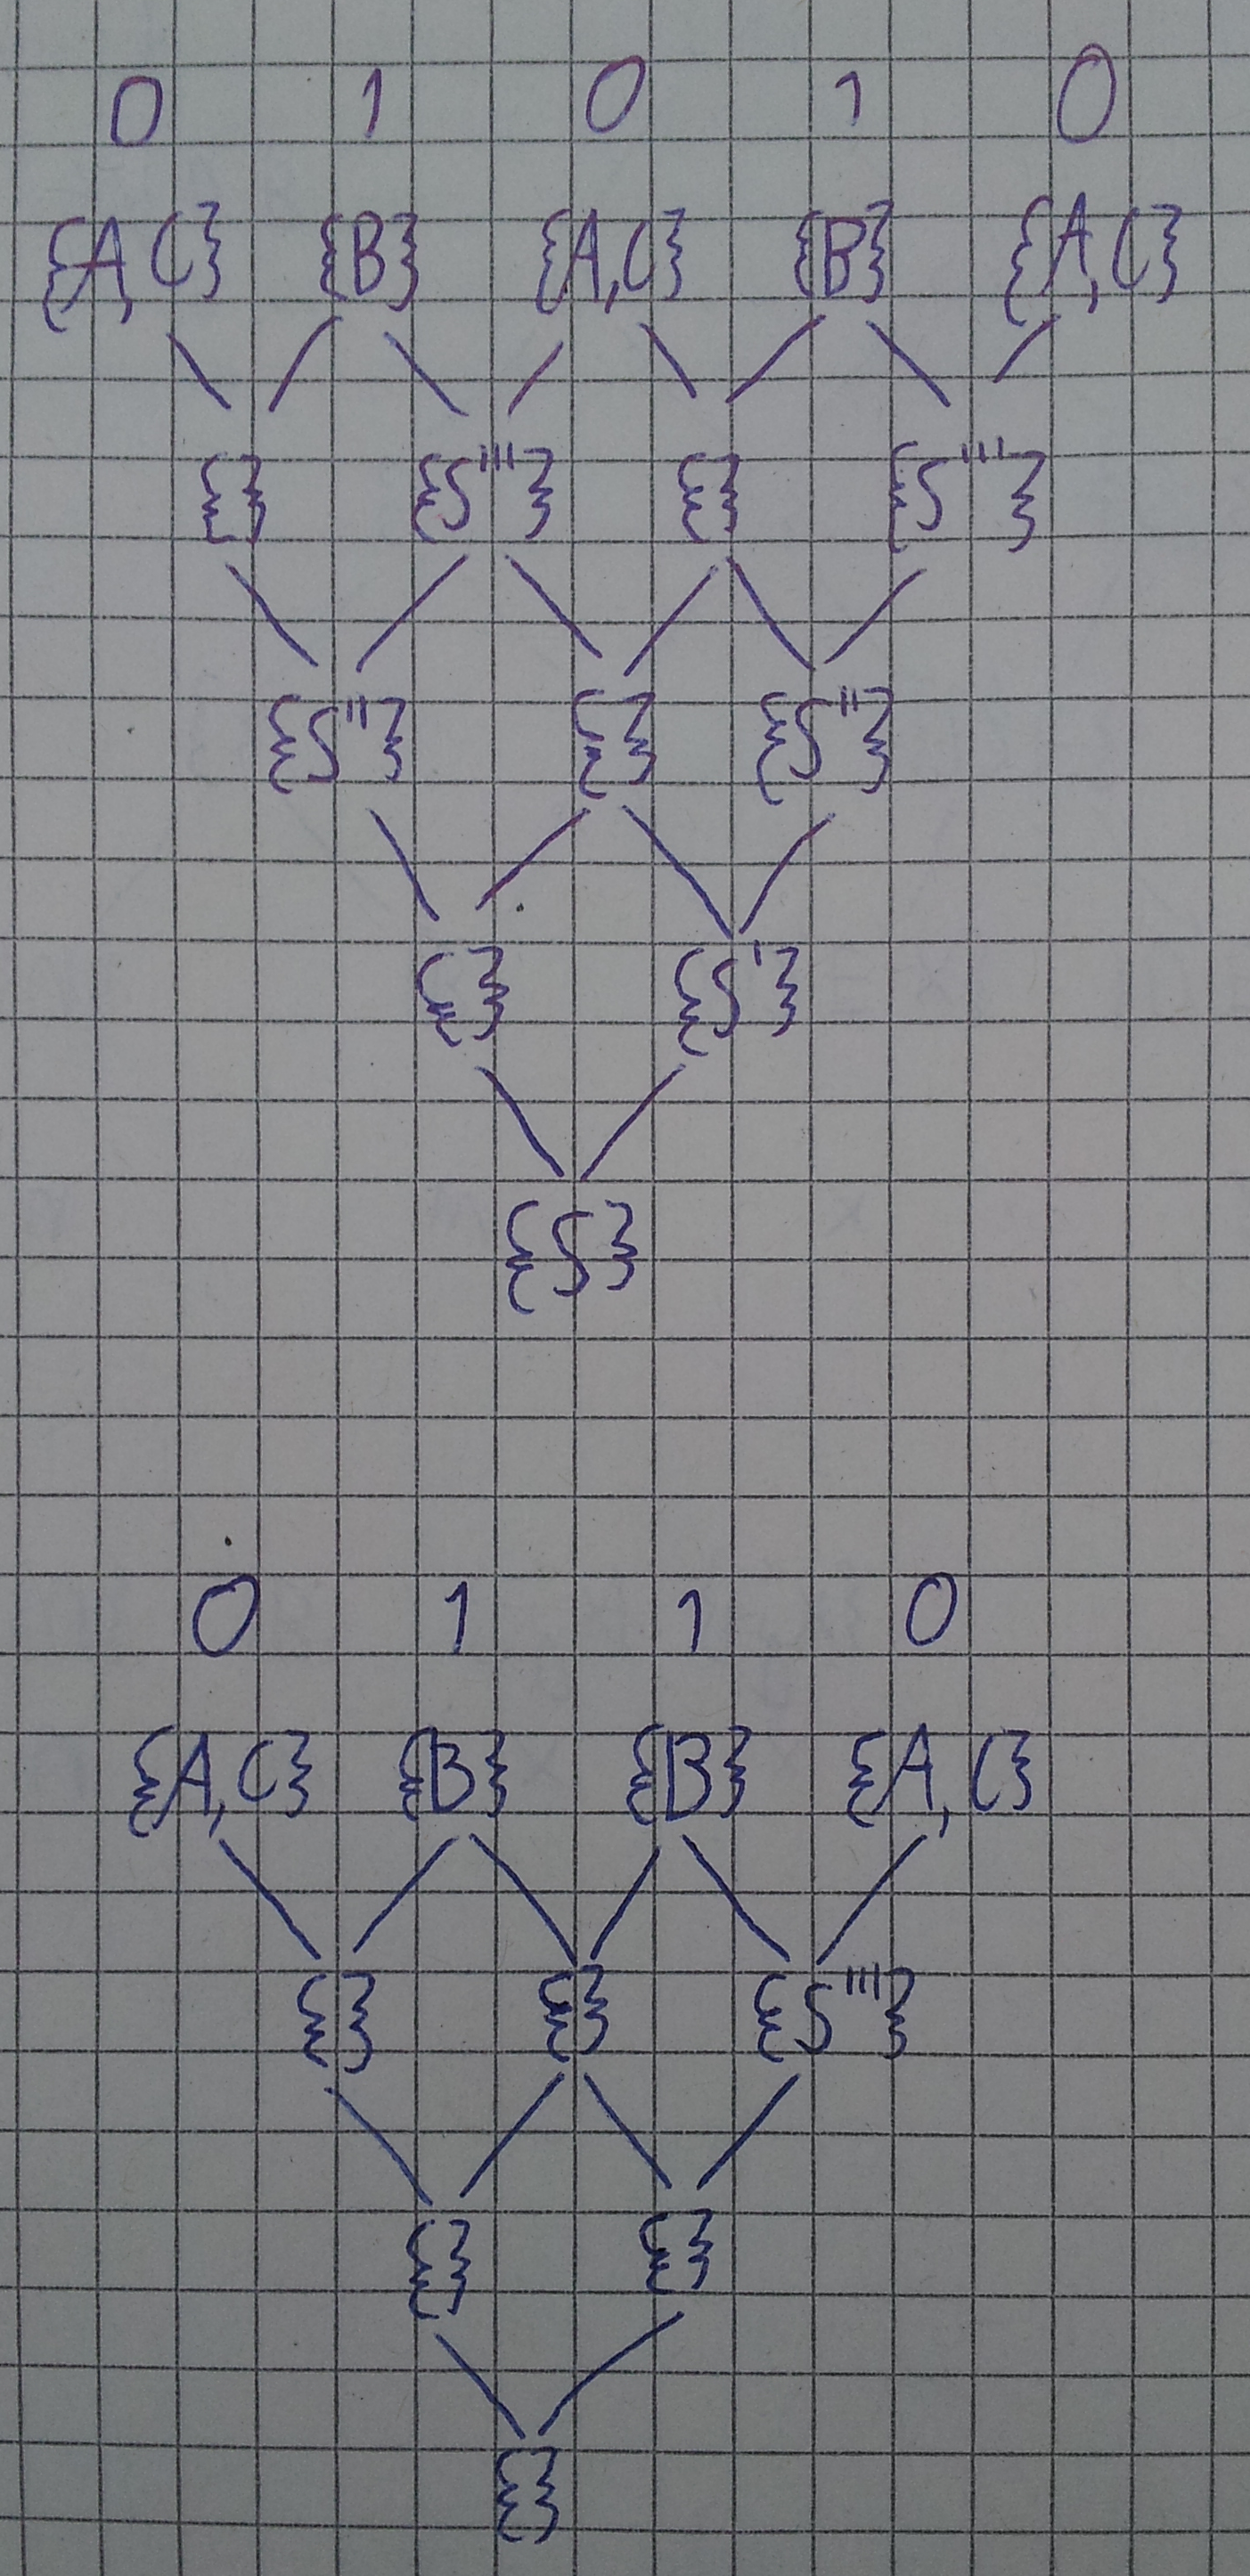 0 1 0 1 0
{A,C} {B} {A,C} {B} {A,C}
{} {S'''} {} {S'''}
{S''} {} {S''}
{} {S'}
{S}
0 1 1 0
{A,C} {B} {B} {A,C}
{} {} {S'''}
{} {}
{}